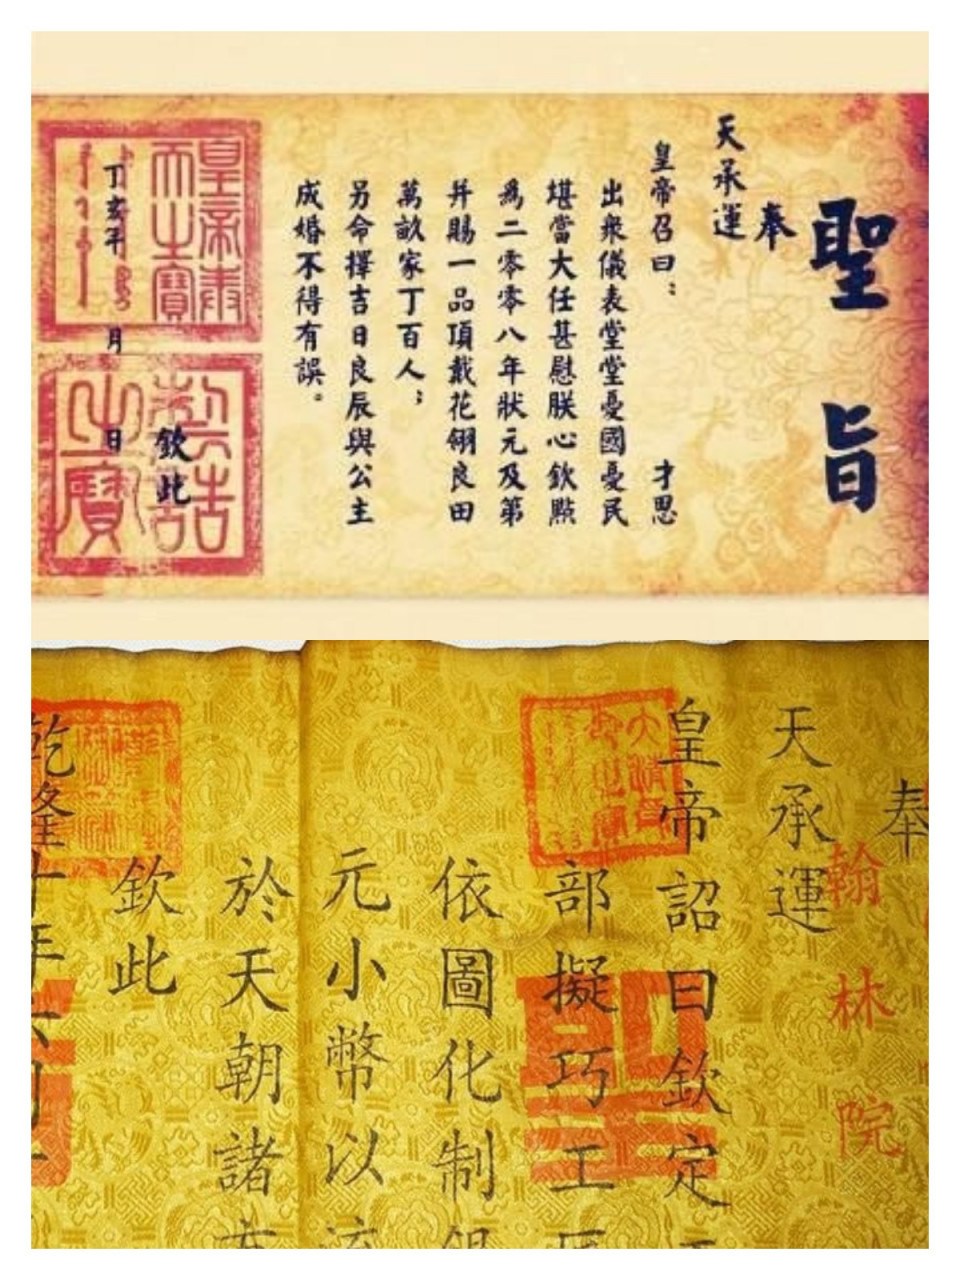 聖旨
奉
天承運
皇帝召曰：才思
出衆儀表堂堂憂國憂民
堪當大任甚慰朕心欽點
爲二零零八年狀元及第
并賜一品頂戴花翎良田
萬畝家丁百人；
另命擇吉日良辰與公主
成婚不得有誤。
欽此
丁亥年 月 日
皇帝奉
天之寶
制誥
之寶
奉
翰林院
天承運
皇帝詔曰欽定
部擬巧工
聖
依圖化制
元小幣以流
於天朝諸
欽此
乾隆十年